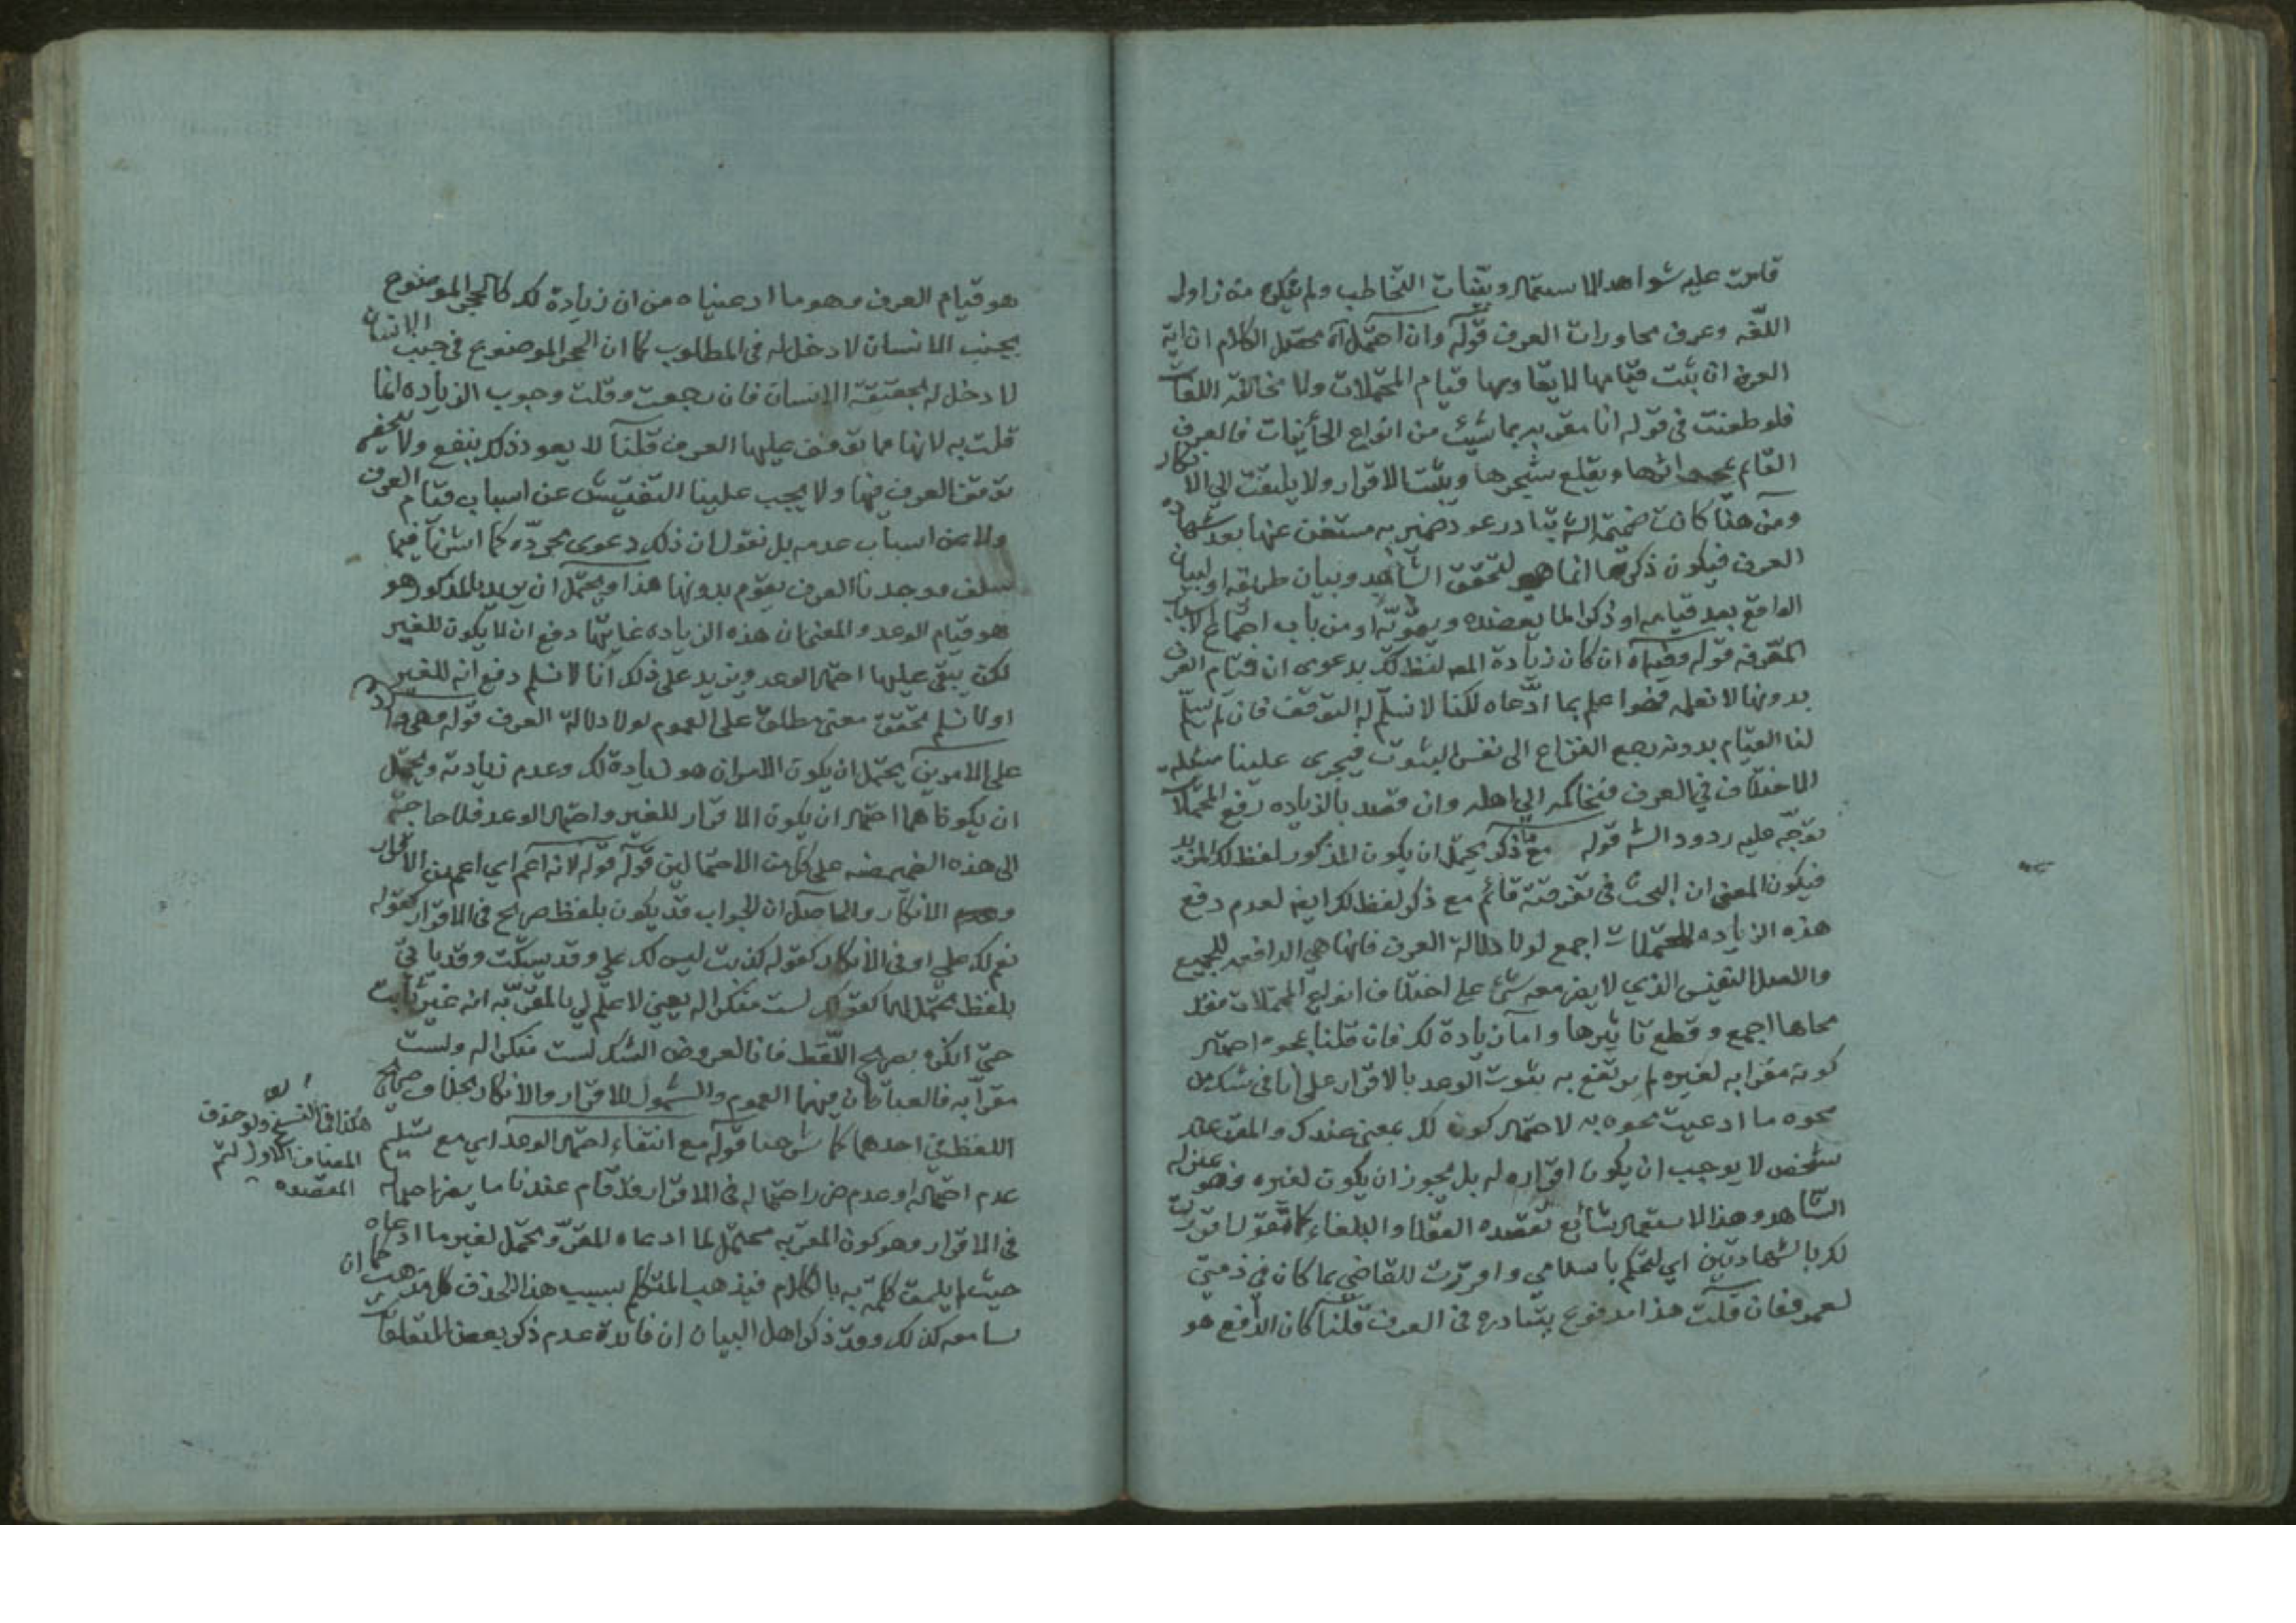 قامت عليه شواهد الاستعمال وبينات التخاطب ولم ينكره من زاول
اللغة وعرف محاورات العرف قوله وان احتمل آه محصل الكلام ان اية
العرف ان يثبت قيامها لا يقاومها قيام المحتملات ولا مخالفة اللغات
فلو طعنت في قوله انا مقر به بما شئت من انواع فالعرف
القائم يمحو اثرها ويقلع شجرها ويثبت الاقرار ولا يلتفت الى الانكار
ومن هنا كانت ضميمة الش تبادر عود ضمير به مستغن عنها بعد شهادة
العرف فيكون ذكرها انما هو لتحقق الشاهد وبيان طريقه او لبيان
الواقع بعد قيامه او ذكرا لما يعضده ويقويه او من باب اجتماع الاسباب
المعرفة قوله وفيه آه ان كان زيادة المص لفظ لك بدعوى ان قيام العرف
بدونها لا نعلمه اعلم بما ادعاه لكنا لا نسلم له التوقف فان لم يسلم
لنا القيام بدونه رجع النزاع الى نفس الثبوت فيجري علينا
الاختلاف في العرف فنحاكمه الى اهله وان قصد بالزيادة رفع المحتملات
توجه عليه ردود الش قوله مع ذكر يحتمل ان يكون المذكور لفظ لك المزيد
فيكون المعنى ان البحث في قائم مع ذكر لفظ لك ايضا لعدم دفع
هذه الزيادة للمحتملات اجمع لولا دلالة العرف فانها هي الدافعة للجميع
والاصل النفيس الذي لا يضر معه شئ على اختلاف انواع المحتملات فقد
محاها اجمع وقطع تاثيرها واما زيادة لك فان قلنا بمحوه احتمال
كونه مقرا به لغيره لم يرتفع به ثبوت الوعد بالاقرار على انا في شك من
محوه ما ادعيت محوه به لاحتمال كون لك بمعنى عندك والمقر عند
شخص لا يوجب ان يكون اقراره له بل يجوز ان يكون لغيره وهو بمنزلة
الشاهد وهذا الاستعمال شائع تقصده العقلاء والبلغاء كما تقول اقررت
لك بالشهادتين اي لتحكم باسلامي واقررت للقاضي بما كان في ذمتي
لعمرو فان قلت هذا مدفوع بتبادره في العرف قلنا كان الدافع هو
هو قيام العرف وهو ما ادعيناه من ان زيادة لك كالحجر الموضوع
بجنب الانسان لا دخل له في المطلوب كما ان الحجر الموضوع في جنب الانسان
لا دخل له بحقيقة الانسان فان رجعت وقلت وجوب الزيادة انما
قلت به لانها مما توقف عليها العرف قلنا لا يعود ذلك بنفع ولا يخفى
توقف العرف فيها ولا يجب علينا التفتيش عن اسباب قيام العرف
ولا عن اسباب عدمه بل نقول ان ذلك دعوى مجردة كما اشرنا فيما
سلف ووجدنا العرف يقوم بدونها هذا ويحتمل ان يريد بالمذكور هو
هو قيام الوعد والمعنى ان هذه الزيادة غايتها دفع ان لا يكون للغير
لكن يبقى عليها احتمال الوعد ونزيد على ذلك انا لا نسلم دفع انه للغير
اولا نسلم تحقق معنى مطلق على العموم لولا دلالة العرف قوله وهي
على الامرين يحتمل ان يكون الامران هو زيادة لك وعدم زيادته ويحتمل
ان يكونا هما احتمال ان يكون الاقرار للغير واحتمال الوعد فلا حاجة
الى هذه على كل من الاحتمالين قوله قوله لانه اعم اي اعم من الاقرار
وعدم الانكار والحاصل ان الجواب قد يكون بلفظ صريح في الاقرار كقوله
نعم لك علي او في الانكار كقوله كذبت ليس لك علي وقد يسكت وقد ياتي
بلفظ محتمل لهما كقولك لست منكرا له يعني لا علم لي بالمقر به انه غير ثابت
حتى انكره بصريح اللفظ فانا لعروض الشك لست منكرا له ولست
مقرا به فالعبارتان فيهما العموم والشمول للاقرار والانكار بخلاف صريح
اللفظ في احدهما كما شرحنا قوله مع انتفاء احتمال الوعد اي مع تسليم
عدم احتماله او عدم ضرر احتماله في الاقرار فقد قام عندنا ما يضر احتماله
في الاقرار وهو كون المقر به محتمل لما ادعاه المقر ويحتمل لغير ما ادعاه
حيث لم يلحق كلمة به بالكلام فيذهب المتكلم بسبب هذا الحذف كل مذهب كما ان
سامعه كذلك وقد ذكر اهل البيان ان فائدة عدم ذكر بعض المتعلقات
هكذا في النسخ ولو حذف
المضاف الاول لتم
المقصود